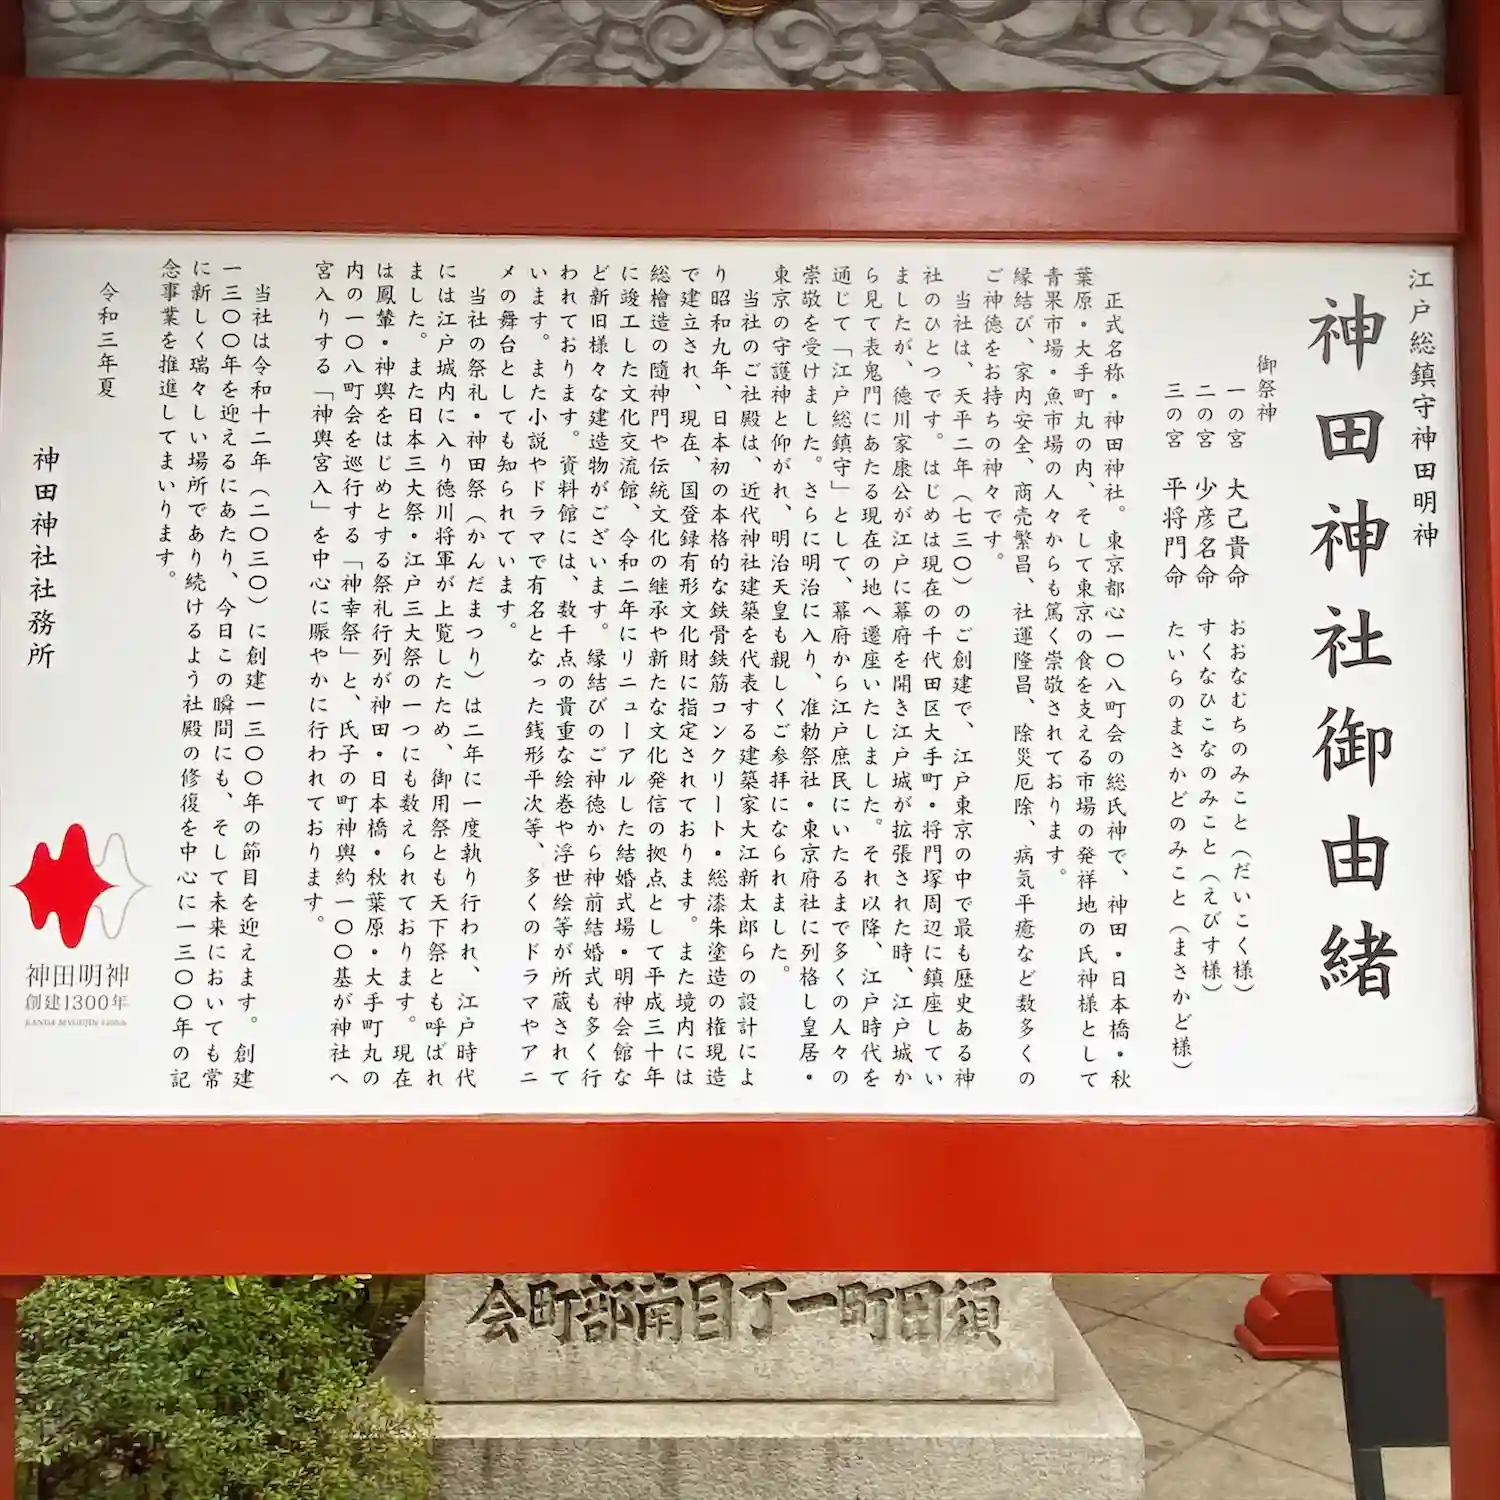 江戸総鎮守神田明神
神田神社御由緒
御祭神
一の宮 大己貴命 おおなむちのみこと（だいこく様）
二の宮 少彦名命 すくなひこなのみこと（えびす様）
三の宮 平将門命 たいらのまさかどのみこと（まさかど様）
正式名称・神田神社。東京都心一〇八町会の総氏神で、神田・日本橋・秋
葉原・大手町丸の内、そして東京の食を支える市場の発祥地の氏神様として
青果市場・魚市場の人々からも篤く崇敬されております。
縁結び、家内安全、商売繁昌、社運隆昌、除災厄除、病気平癒など数多くの
ご神徳をお持ちの神々です。
当社は、天平二年（七三〇）のご創建で、江戸東京の中で最も歴史ある神
社のひとつです。はじめは現在の千代田区大手町・将門塚周辺に鎮座してい
ましたが、徳川家康公が江戸に幕府を開き江戸城が拡張された時、江戸城か
ら見て表鬼門にあたる現在の地へ遷座いたしました。それ以降、江戸時代を
通じて「江戸総鎮守」として、幕府から江戸庶民にいたるまで多くの人々の
崇敬を受けました。さらに明治に入り、准勅祭社・東京府社に列格し皇居・
東京の守護神と仰がれ、明治天皇も親しくご参拝になられました。
当社のご社殿は、近代神社建築を代表する建築家大江新太郎らの設計によ
り昭和九年、日本初の本格的な鉄骨鉄筋コンクリート・総漆朱塗造の権現造
で建立され、現在、国登録有形文化財に指定されております。また境内には
総檜造の隨神門や伝統文化の継承や新たな文化発信の拠点として平成三十年
に竣工した文化交流館、令和二年にリニューアルした結婚式場・明神会館な
ど新旧様々な建造物がございます。縁結びのご神徳から神前結婚式も多く行
われております。資料館には、数千点の貴重な絵巻や浮世絵等が所蔵されて
います。また小説やドラマで有名となった銭形平次等、多くのドラマやアニ
メの舞台としても知られています。
当社の祭礼・神田祭（かんだまつり）は二年に一度執り行われ、江戸時代
には江戸城内に入り徳川将軍が上覧したため、御用祭とも天下祭とも呼ばれ
ました。また日本三大祭・江戸三大祭の一つにも数えられております。現在
は鳳輦・神輿をはじめとする祭礼行列が神田・日本橋・秋葉原・大手町丸の
内の一〇八町会を巡行する「神幸祭」と、氏子の町神輿約一〇〇基が神社へ
宮入りする「神輿宮入」を中心に賑やかに行われております。
当社は令和十二年（二〇三〇）に創建一三〇〇年の節目を迎えます。創建
一三〇〇年を迎えるにあたり、今日この瞬間にも、そして未来においても常
に新しく瑞々しい場所であり続けるよう社殿の修復を中心に一三〇〇年の記
念事業を推進してまいります。
令和三年夏
神田神社社務所
神田明神
創建1300年
KANDA MYOUJIN 1300th
須田町一丁目南部町会